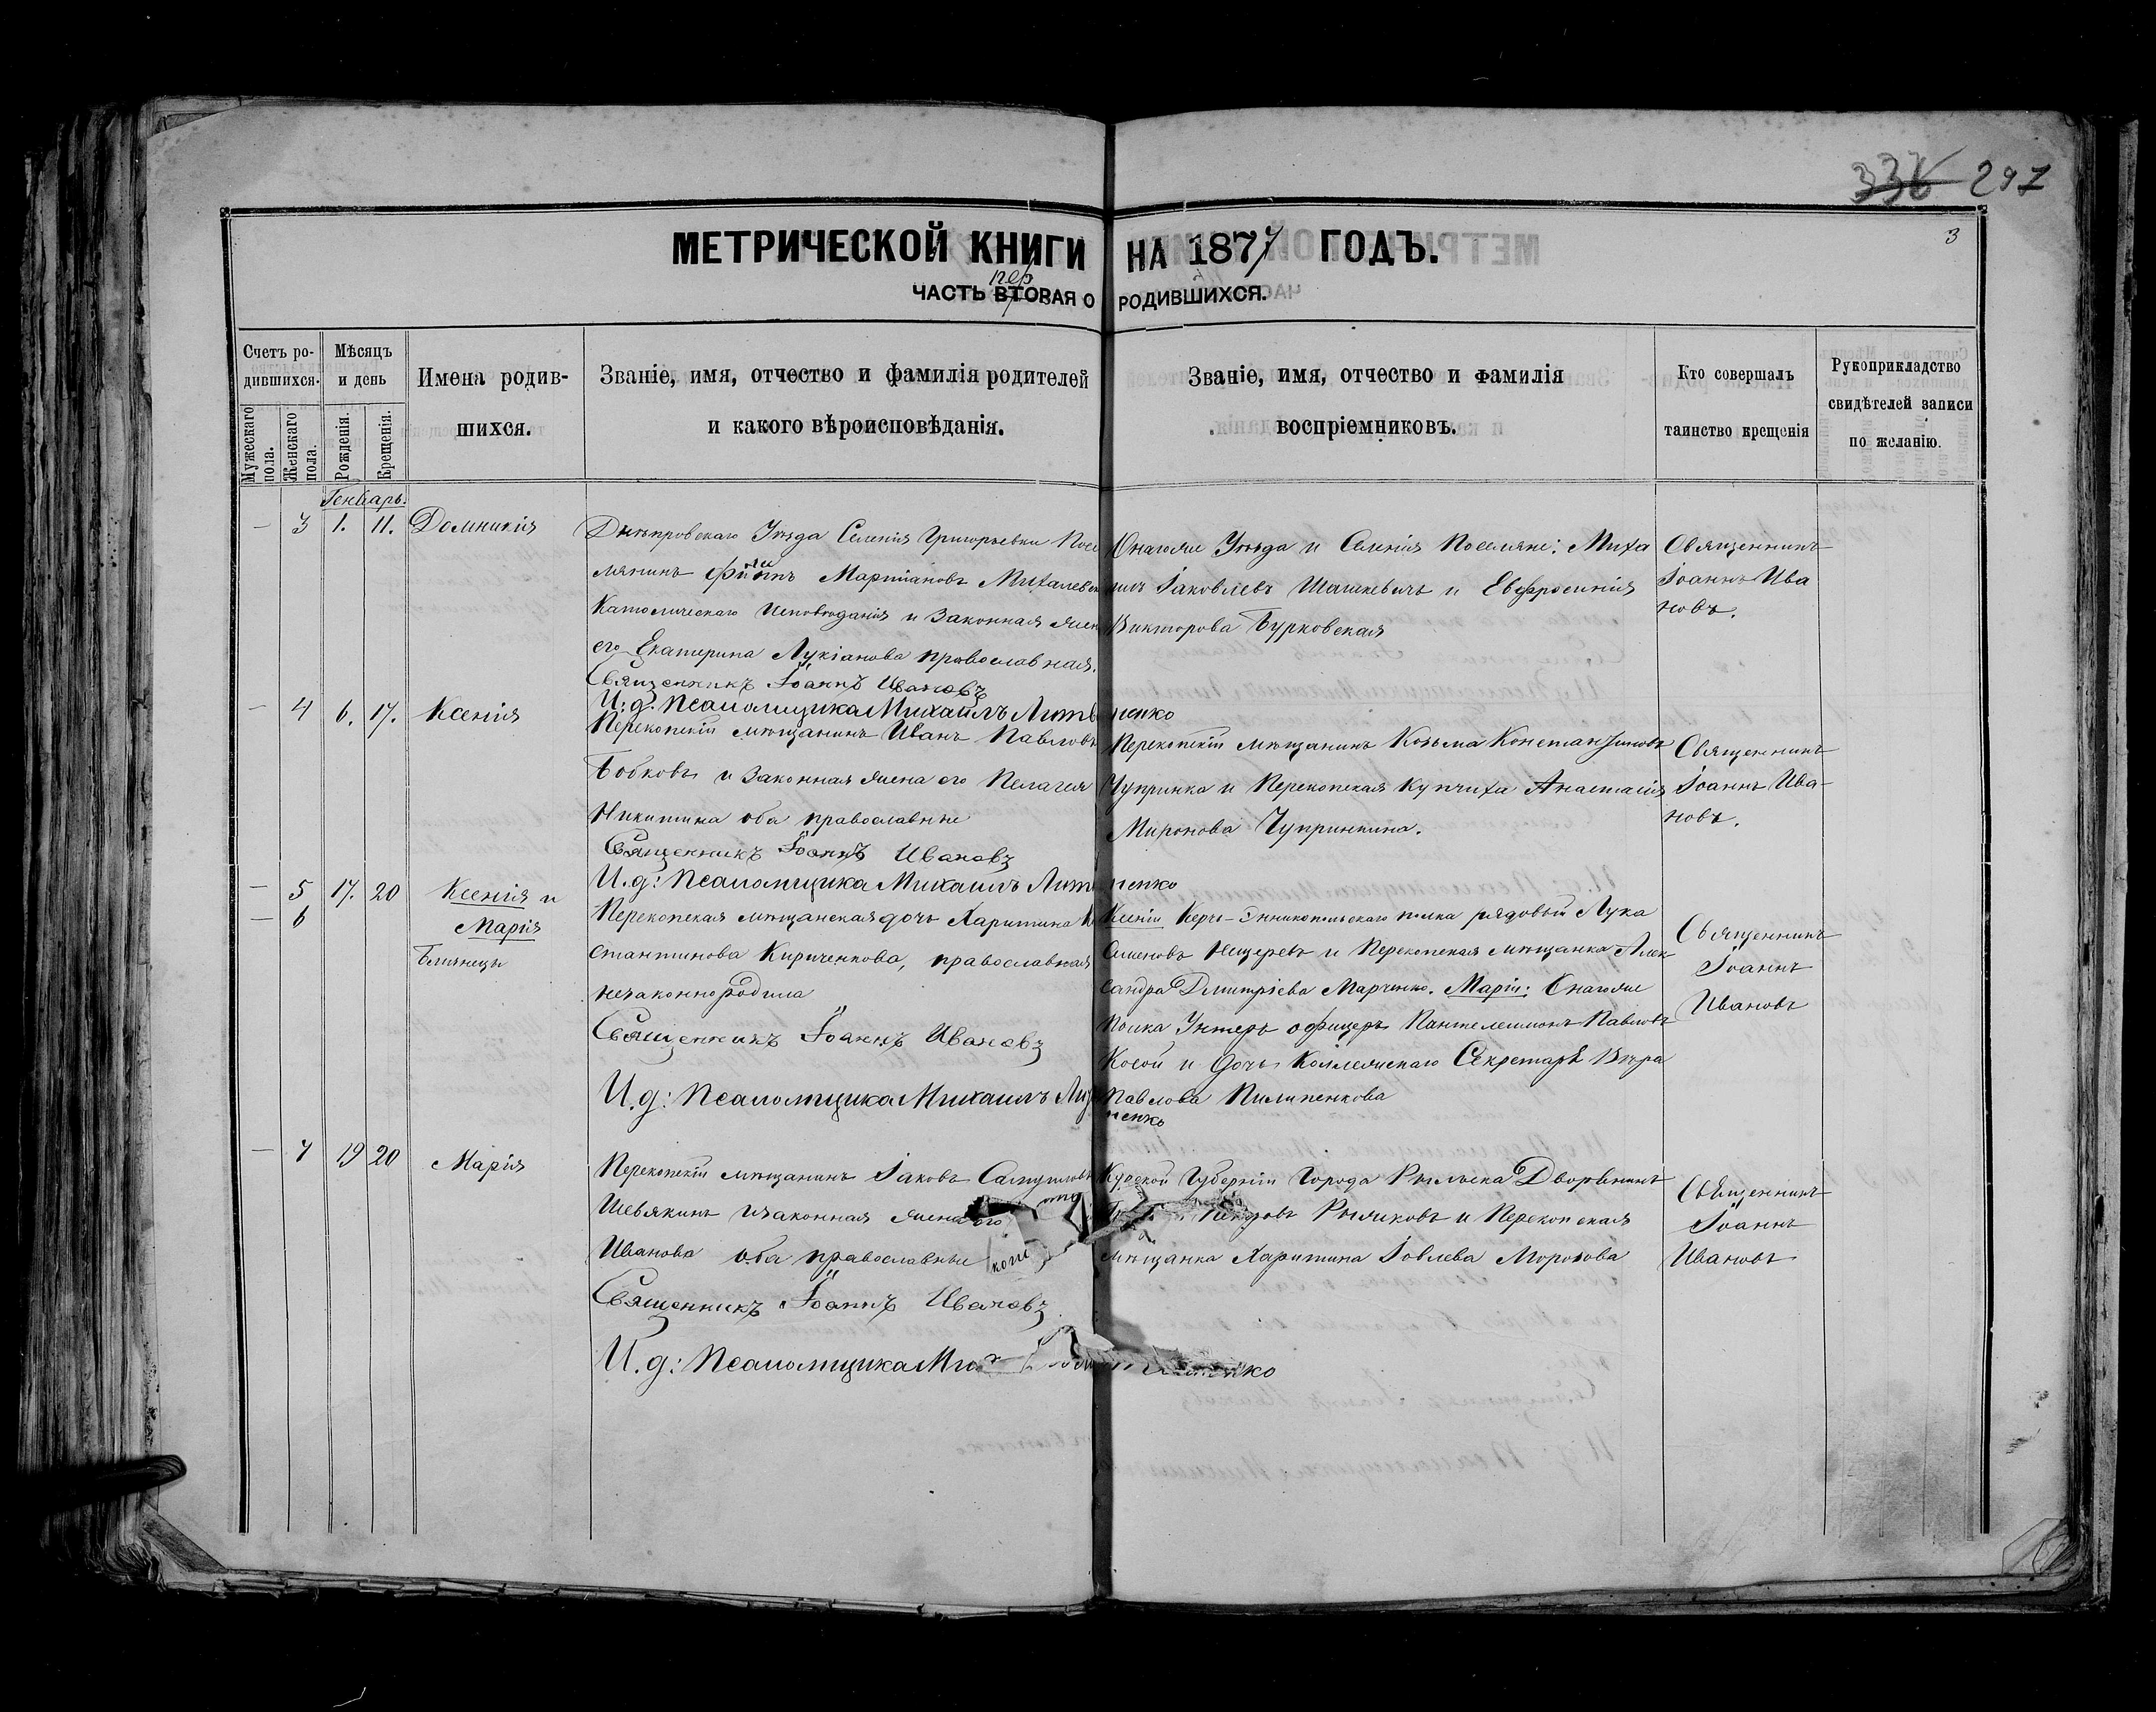 336 297
3
МЕТРИЧЕСКОЙ КНИГИ НА 1877 ГОДЪ.
пер
ЧАСТЬ ВТОРАЯ О РОДИВШИХСЯ.
Счетъ родившихся.
Мужескаго пола.
Женскаго пола.
Мѣсяцъ и день
Рожденія.
Крещенія.
Имена родившихся.
Званіе, имя, отчество и фамилія родителей
и какого вѣроисповѣданія.
Званіе, имя, отчество и фамилія
воспріемниковъ.
Кто совершалъ
таинство крещенія
Рукоприкладство
свидѣтелей записи
по желанію.
Генварь.
— 3 1. 11. Домникія
Днѣпровскаго Уѣзда Селенія Григорьевки Посе
лянинъ Мартіановъ Михалевск
Католическаго Исповѣданія и Законная жен
его Екатерина Лукіанова православная.
Священникъ Іоаннъ Ивановъ
И. д. Псаломщика Михаилъ Литвиненко
Онагоже Уѣзда и Селенія Поселяне: Миха
илъ Іаковлевъ Шашкевичъ и Евфросинія
Викторова Бурковская
Священникъ
Іоаннъ Ива
новъ.
— 4 6. 17. Ксенія
Перекопскій мѣщанинъ Иванъ Павловъ
Бобковъ и Законная жена его Пелагея
Никитина оба православные
Священникъ Іоаннъ Ивановъ
И. д: Псаломщика Михаилъ Литвиненко
Перекопскій мѣщанинъ Козьма Константиновъ
Чупринка и Перекопская Купчиха Анастасія
Миронова Чупринкина.
Священникъ
Іоаннъ Ива-
новъ.
— 5 17. 20 Ксенія и
— 6 Марія
Близнецы
Перекопская мѣщанская дочь Харитина Кон
стантинова Кириченкова, православная
незаконно родила
Священникъ Іоаннъ Ивановъ
И. д: Псаломщика Михаилъ Литвиненко
Ксеніи Керчь-Эникольскаго полка рядовый Лука
Семеновъ Нещеревъ и Перекопская мѣщанка Алек
сандра Дмитріева Марченко. Маріи: Онагоже
Полка Унтеръ офицеръ Пантелеимонъ Павловъ
Косой и дочь Коллежскаго Секретаря Вѣра
Павлова Пилипенкова
Священникъ
Іоаннъ
Ивановъ
— 7 19 20 Марія
Перекопскій мѣщанинъ Іаковъ Самуиловъ
Шевякинъ и законная жена его
Иванова оба православные
Священникъ Іоаннъ Ивановъ
И. д: Псаломщика
Курской Губерніи Города Рыльска Дворянинъ
Петровъ Рыжковъ и Перекопская
мѣщанка Харитина Іовлева Морозова
Священникъ
Іоаннъ
Ивановъ